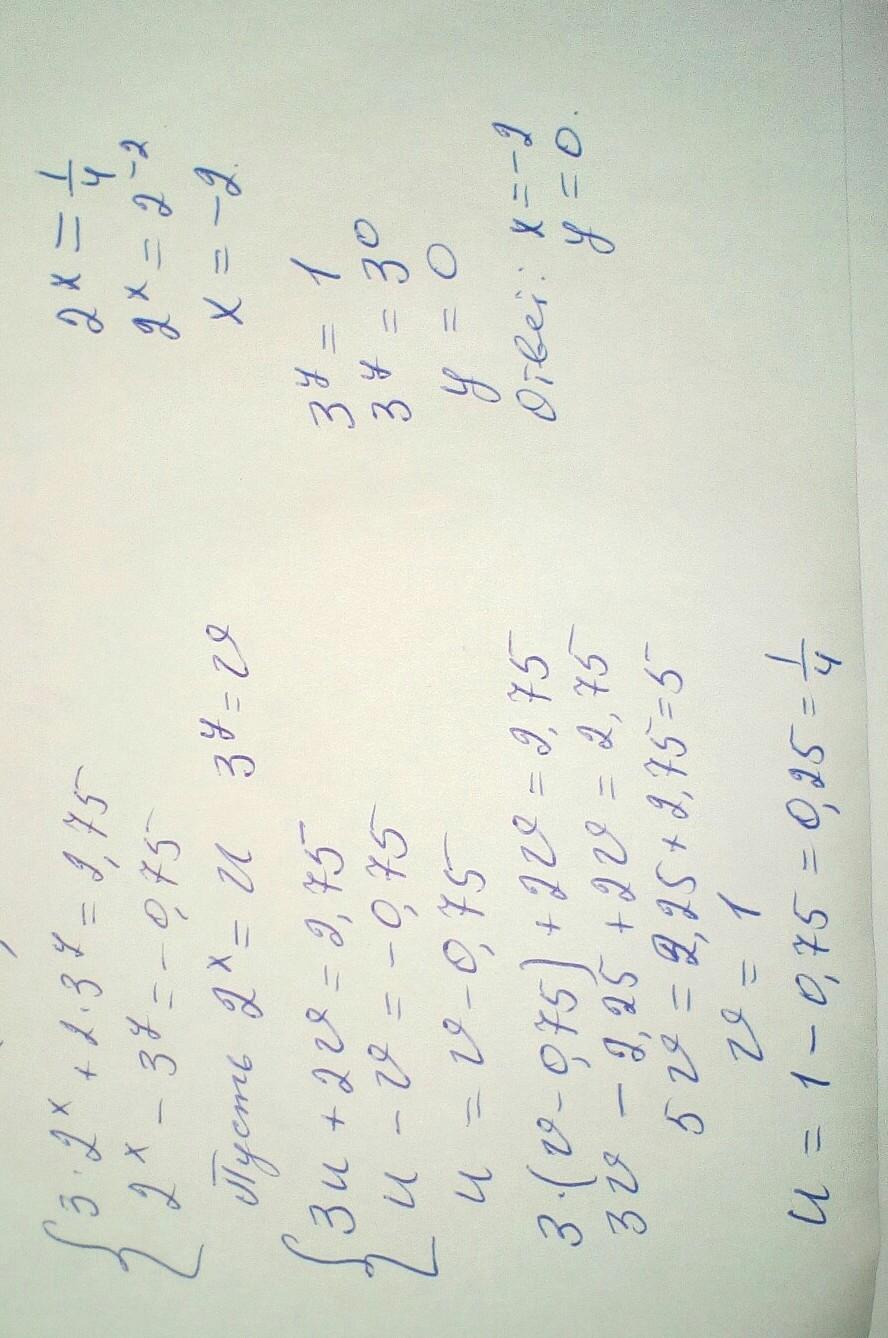 3·2ˣ + 2·3ʸ = 2,75
2ˣ − 3ʸ = −0,75
Пусть 2ˣ = u 3ʸ = v
3u + 2v = 2,75
u − v = −0,75
u = v − 0,75
3·(v − 0,75) + 2v = 2,75
3v − 2,25 + 2v = 2,75
5v = 2,25 + 2,75 = 5
v = 1
u = 1 − 0,75 = 0,25 = 1/4
2ˣ = 1/4
2ˣ = 2⁻²
x = −2.
3ʸ = 1
3ʸ = 3⁰
y = 0
Ответ: x = −2
y = 0.